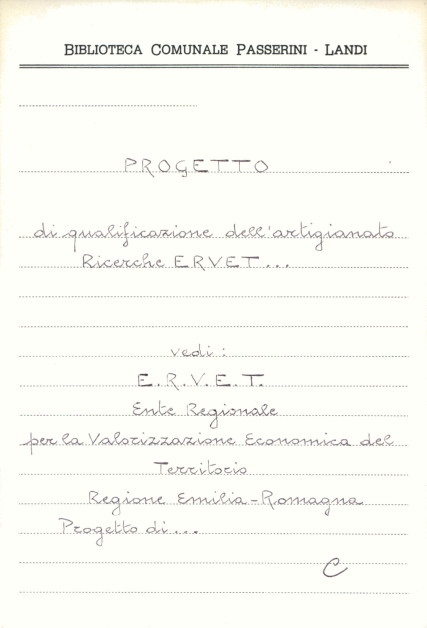 BIBLIOTECA COMUNALE PASSERINI - LANDI
PROGETTO
di qualificazione dell'artigianato
Ricerche ERVET...
vedi:
E.R.V.E.T.
Ente Regionale
per la Valorizzazione Economica del
Territorio
Regione Emilia-Romagna
Progetto di...
C